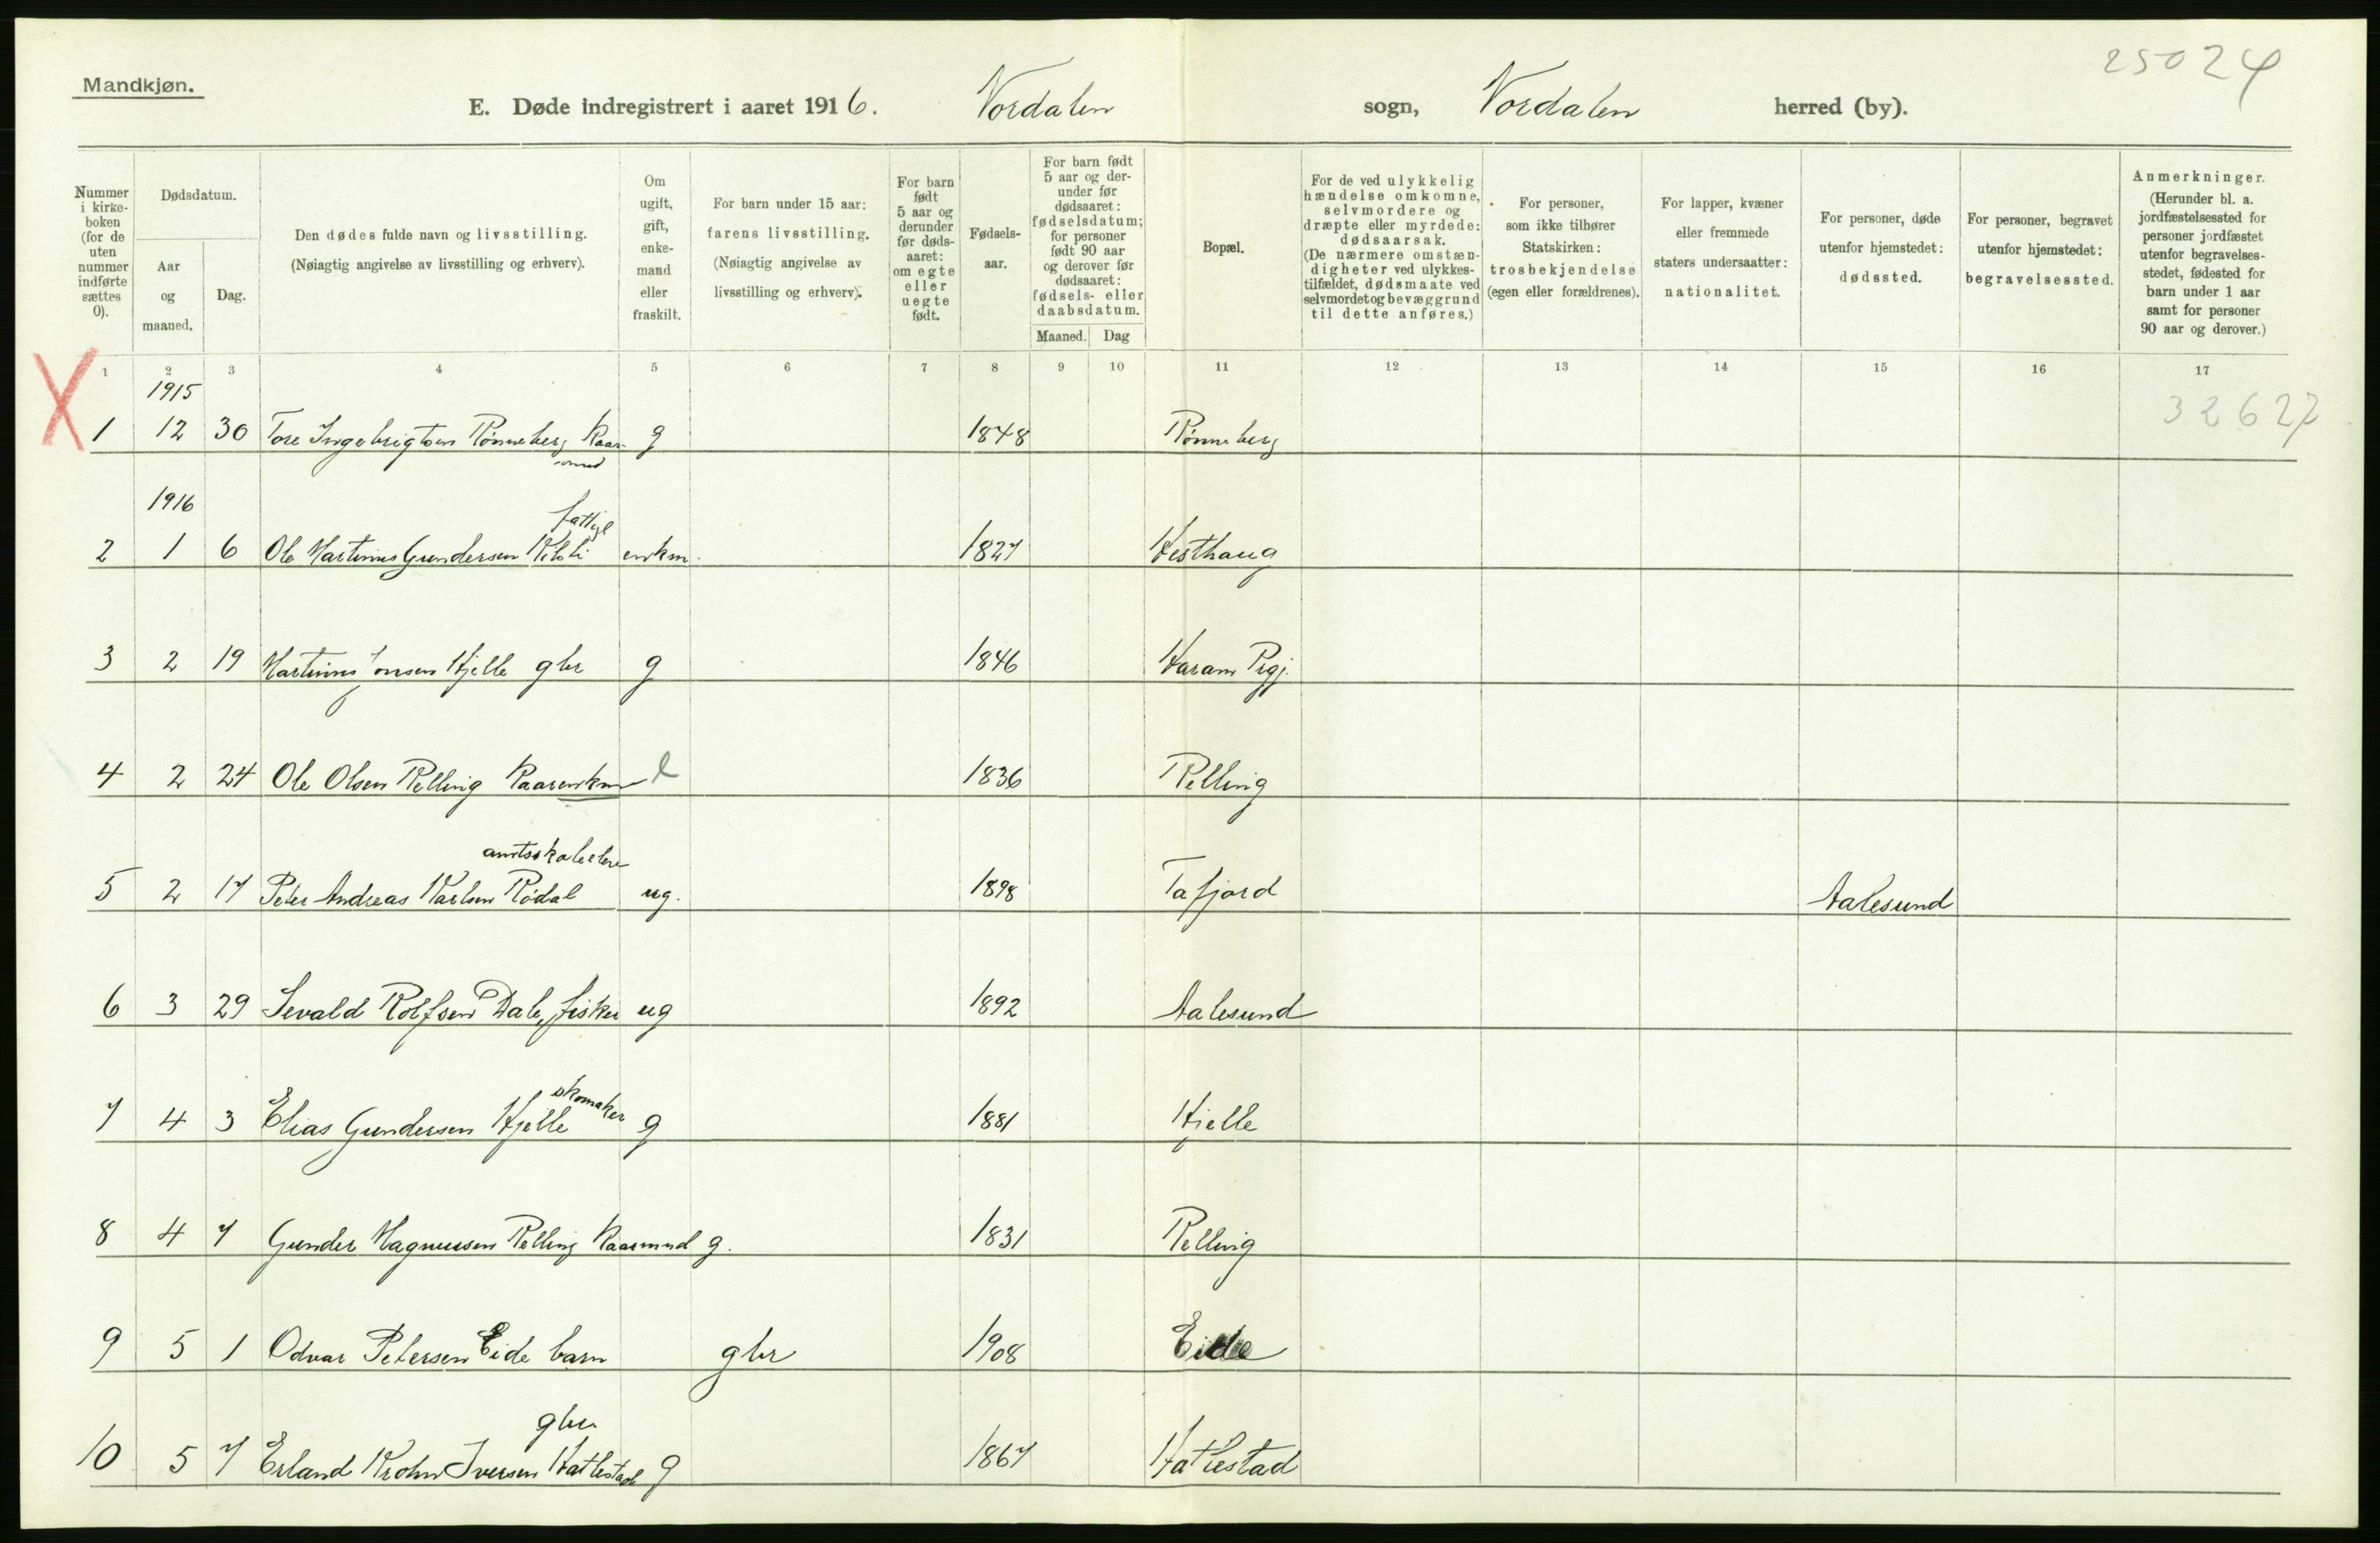 25024
Mandkjøn.
E. Døde indregistrert i aaret 1916. Nordalen sogn, Nordalen herred (by).
Nummer i kirke-boken (for de uten nummer indførte sættes 0).
Dødsdatum.
Aar og maaned.
Dag.
Den dødes fulde navn og livsstilling.
(Nøiagtig angivelse av livsstilling og erhverv).
Om ugift, gift, enke-mand eller fraskilt.
For barn under 15 aar: farens livsstilling.
(Nøiagtig angivelse av livsstilling og erhverv).
For barn født 5 aar og derunder før døds-aaret: om egte eller uegte født.
Fødsels-aar.
For barn født 5 aar og der-under før dødsaaret: fødselsdatum; for personer født 90 aar og derover før dødsaaret: fødsels- eller daabsdatum.
Maaned. Dag
Bopæl.
For de ved ulykkelig hændelse omkomne, selvmordere og dræpte eller myrdede: dødsaarsak.
(De nærmere omstæn-digheter ved ulykkes-tilfældet, dødsmaate ved selvmordet og bevæggrund til dette anføres.)
For personer, som ikke tilhører Statskirken: trosbekjendelse (egen eller forældrenes).
For lapper, kvæner eller fremmede staters undersaatter: nationalitet.
For personer, døde utenfor hjemstedet: dødssted.
For personer, begravet utenfor hjemstedet: begravelsessted.
Anmerkninger.
(Herunder bl. a. jordfæstelsessted for personer jordfæstet utenfor begravelses-stedet, fødested for barn under 1 aar samt for personer 90 aar og derover.)
1 2 3 4 5 6 7 8 9 10 11 12 13 14 15 16 17
1915
32627
1 12 30 Tore Ingebrigtsen Rønneberg Kaar- g 1848 Rønneberg
mand
1916
fattigl
2 1 6 Ole Martinus Gundersen Kilsti enkm. 1827 Vesthaug
3 2 19 Martinus Jonsen Hjelle gbr g 1846 Haram Prgj.
4 2 24 Ole Olsen Relling Kaarenkm e 1836 Relling
amtsskoleelev
5 2 17 Peter Andreas Karlsen Rødal ug. 1898 Tafjord Aalesund
6 3 29 Sevald Rolfsen Dale, fisker ug 1892 Aalesund
skomaker
7 4 3 Elias Gundersen Hjelle g 1881 Hjelle
8 4 7 Gunder Magnussen Relling Kaarmnd g. 1831 Relling
9 5 1 Odvar Petersen Eide barn gbr 1908 Eide
gbr.
10 5 7 Erland Krohn Iversen Hatlestad g 1867 Hatlestad